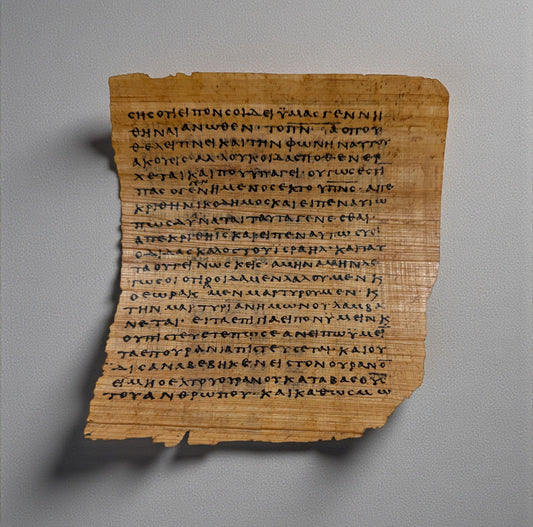 ϲηϲοτιειπονϲοιδειϋμαϲγεννη
θηναιανωθεν· τοπν̅· οπου
θελειπνεικαιτηνφωνηναυτου
ακουειϲ·αλλουκοιδαϲποθενερ
χεταικαιπουϋπαγει· ουτωϲεϲτι
παϲογεννημενοϲεκτουπ̅ν̅ϲ̅· απε
κριθηνικοδημοϲκαιειπεναυτω
πωϲδυναταιταυταγενεϲθαι·
απεκριθηι̅ϲ̅καιειπεναυτωϲυει
οδιδαϲκαλοϲτουιϲραηλ· καιταυ
ταουγεινωϲκειϲ· αμηναμηνλε
οιδαμενλαλουμενκ
οεωρακαμενμαρτυρουμεν· κ
τηνμαρτυριανημωνουλαμβα
νεται· ειταεπιγιαειπονυμεινκ
ουπιϲτευετεπωϲεανειπωυμει
ταεπουρανιαπιϲτευϲεται· καιου
διϲαναβεβηκενειϲτονουρανο
ειμηοεκτουουρανουκαταβαϲου̅ϲ̅
τουανθρωπου· καικαθωϲμω